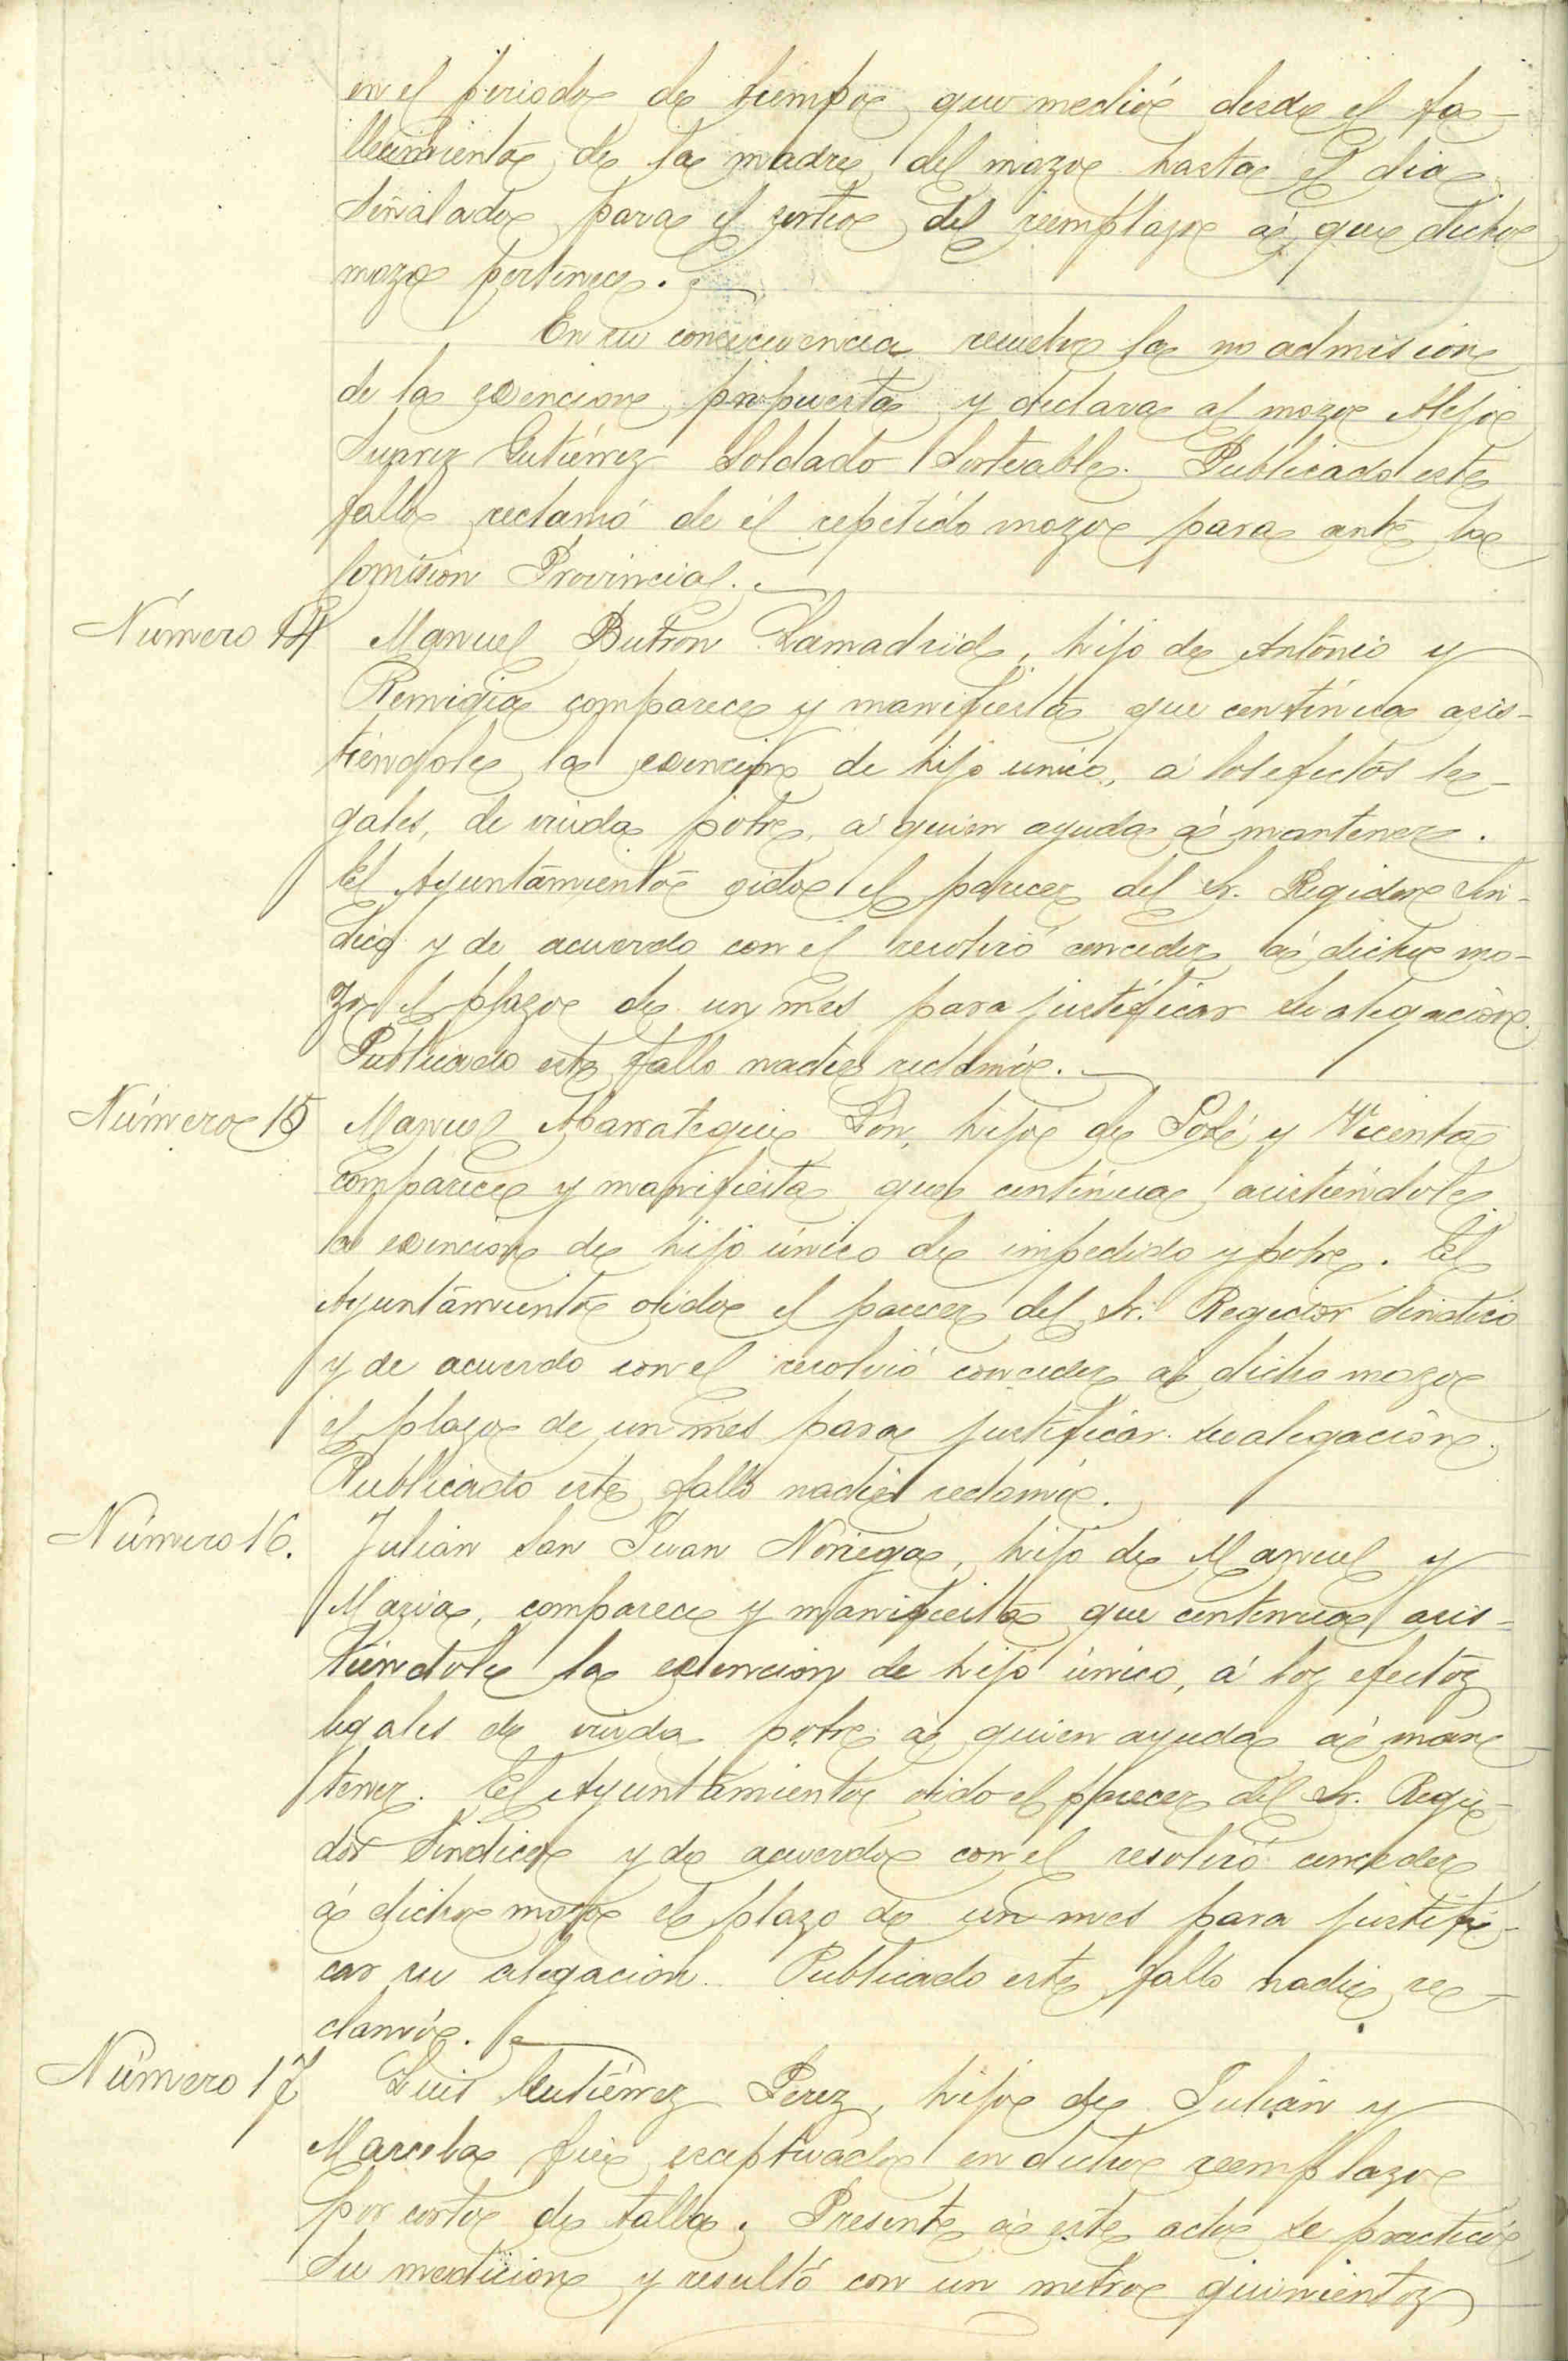 en el periodo de tiempo que medió desde el fa-
llecimiento de la madre del mozo hasta el dia
señalado para el sorteo del reemplazo á que dicho
mozo pertenece.
En su consecuencia resuelve la no admision
de la exencion propuesta y declara al mozo Alejo
Suarez Gutiérrez Soldado Sorteable. Publicado este
fallo reclamó de él repetido mozo para ante la
Comision Provincial.
Número 14 Manuel Butron Lamadrid, hijo de Antonio y
Remigia comparece y manifiesta que continua asis-
tiendole la exencion de hijo unico, á los efectos le-
gales, de viuda pobre, á quien ayuda á mantener.
El Ayuntamiento oido el parecer del Sr. Regidor Sin-
dico y de acuerdo con el resolvió conceder á dicho mo-
zo el plazo de un mes para justificar su alegacion.
Publicado este fallo nadie reclamó.
Número 15 Manuel Abarrategui Pon, hijo de José y Vicenta
comparece y manifiesta que continua asistiéndole
la exencion de hijo único de impedido y pobre. El
Ayuntamiento oido el parecer del Sr. Regidor Sindico
y de acuerdo con el resolvió conceder á dicho mozo
el plazo de un mes para justificar su alegacion.
Publicado este fallo nadie reclamó.
Número 16. Julian San Juan Noriega, hijo de Manuel y
Maria, comparece y manifiesta que continua asis-
tiéndole la exencion de hijo único, á los efectos
legales de viuda pobre á quien ayuda á man
tener. El Ayuntamiento oido el parecer del Sr. Regi-
dor Sindico y de acuerdo con el resolvió conceder
á dicho mozo el plazo de un mes para justifi-
car su alegacion. Publicado este fallo nadie re-
clamó.
Número 17 Luis Gutiérrez Perez, hijo de Julián y
Marcela fué exceptuado en dicho reemplazo
por corto de talla. Presente á este acto se practicó
su medicion y resultó con un metro quinientos